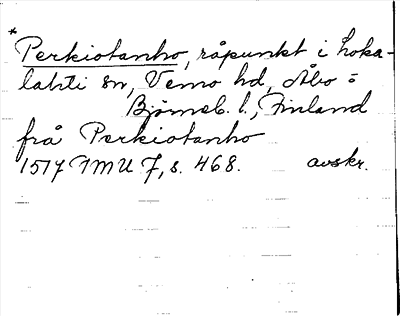 *
Perkiotanho, råpunkt i Loka-
lahti sn, Vemo hd, Åbo o
Björneb. l., Finland
från Perkiotanho
1517 FMU 7, s. 468. avskr.